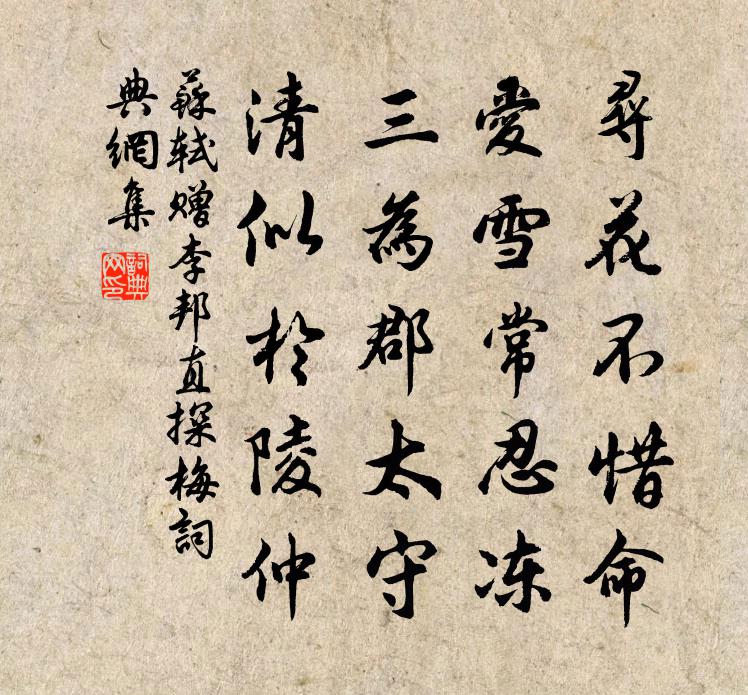 尋花不惜命
愛雪常忍冻
三為郡太守
清似於陵仲
蘇軾赠李邦直探梅詞
典網集
詞典
网印